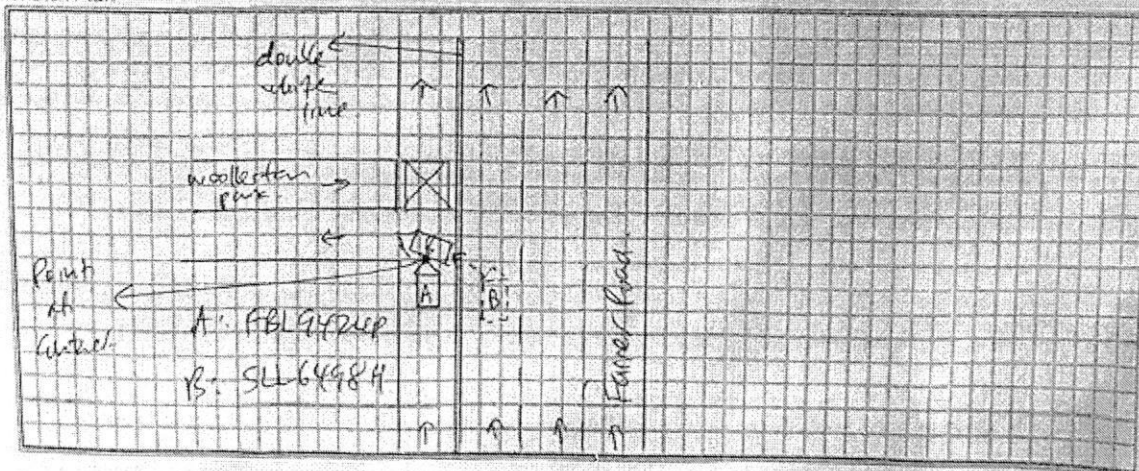 double
white
line.
woollerton
park
Point
of
Contact
A
B
A: FBL9424P
B: SLL6498H
Farrer Road.